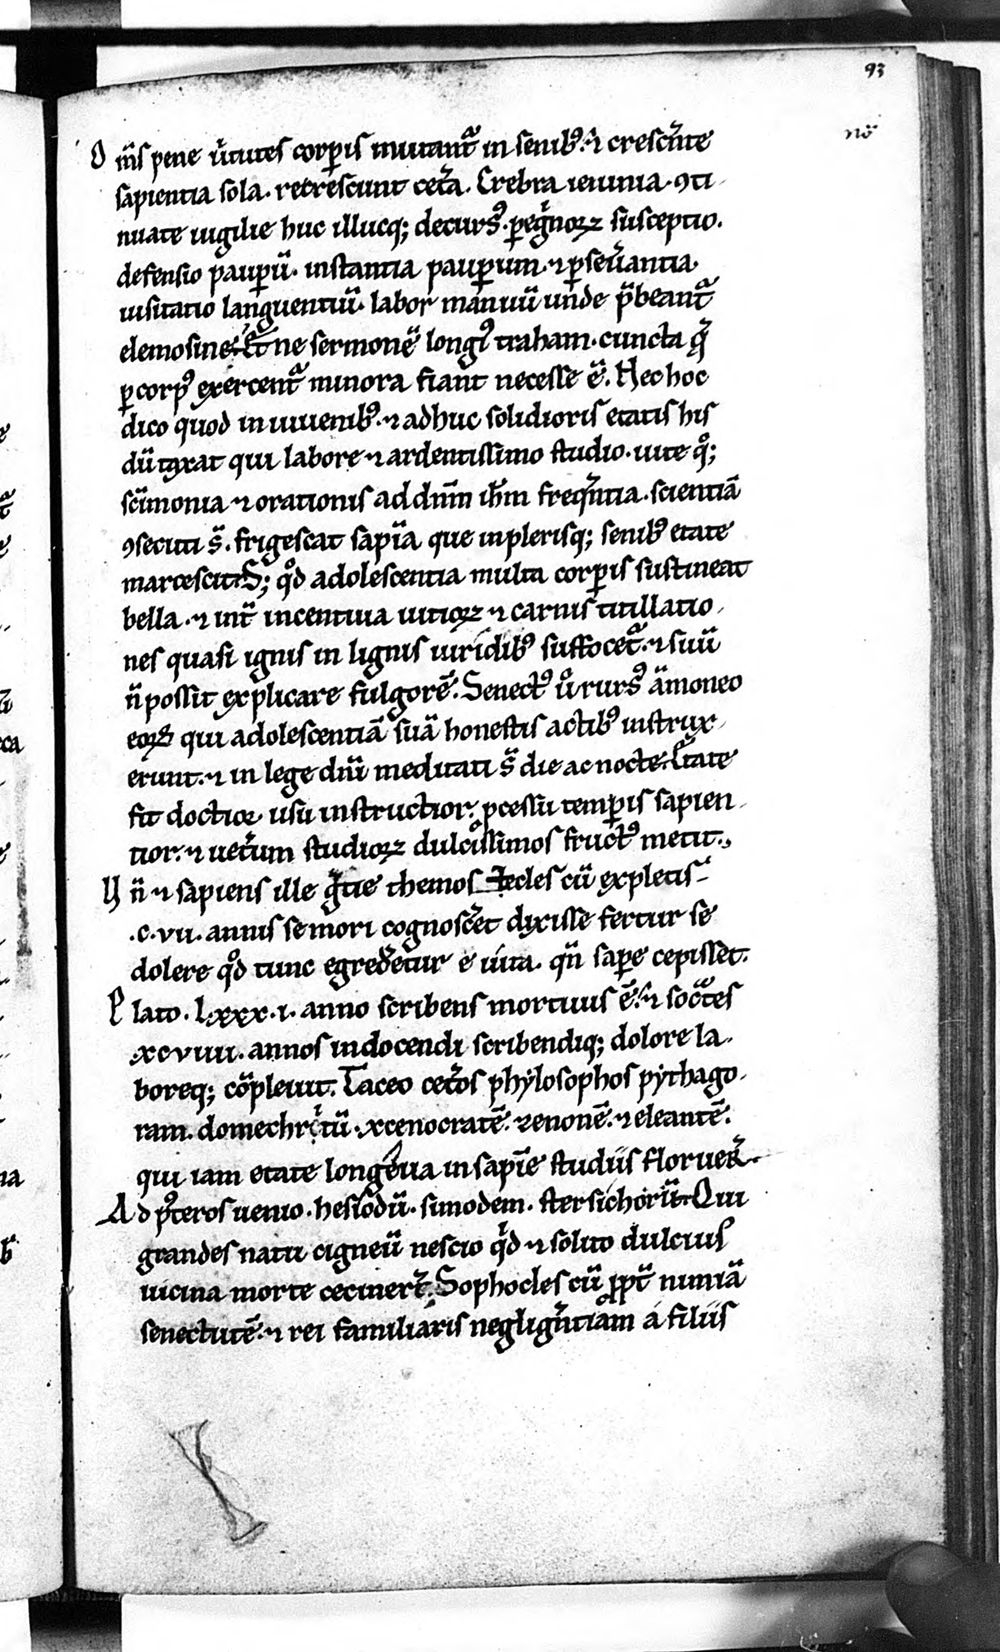 93
no͞
O m̅s pene u᷑tutes corꝑis mutant᷑ in senib᷒. ⁊ cresc᷑nte
sapientia sola. retrescunt cet᷑a. Crebra ieiunia. ꝯti-
nuate uigilie huc illucq; decurs᷒. ꝑeg᷑noꝝ susceptio.
defensio pauꝑu̅. instantia pauꝑum. ⁊ ꝑseu᷑antia.
uisitatio languentiu̅. labor manuu̅ unde p̅beant᷑
elemosine. Et ne sermone̅ longi᷒ traham. cuncta q̅
ꝑ corp᷒ exercent᷑ minora fiant necesse e̅. Nec hoc
dico quod in iuuenib᷒. ⁊ adhuc solidioris etatis his
du̅taxat qui labore ⁊ ardentissimo studio. uite qͦ;
sc̅imonia ⁊ orationis ad dn̅m ih̅m freq᷑ntia. scientia̅
ꝯsecuti s̅. frigescat sapi̅a que in plerisq; senib᷒ etate
marcescit. S; qͦd adolescentia multa corꝑis sustineat
bella. ⁊ int᷑ incentiua uitioꝝ ⁊ carnis titillatio-
nes quasi ignis in lignis uiridib᷒ suffocet᷑. ⁊ suu̅
n̅ possit explicare fulgore̅. Senect᷒ uͦ rurs᷒ a̅moneo
eoꝝ qui adolescentia̅ sua̅ honestis actib᷒ instrux-
erunt. ⁊ in lege dn̅i meditati s̅ die ac nocte. Etate
fit doctior usu instructior. ꝓcessu temꝑis sapien-
tior. ⁊ uet᷑um studioꝝ dulcissimos fruct᷒ metit.
U n̅ ⁊ sapiens ille g᷑tie themos tecles cu̅ expletis
.c.vii. annis se mori cognosc᷑et dixisse fertur se
dolere qͦd tunc egred᷑etur e uita. qn̅ saꝑe cepisset.
P lato. lxxx.i. anno scribens mortuus e̅. ⁊ soc᷑tes
.xcviiii. annos in docendi scribendiq; dolore la-
boreq; co̅pleuit. Taceo cet᷑os phylosophos pythago-
ram. domechrᷓtu̅. xcenocrate̅. zenone̅. ⁊ eleante̅.
qui iam etate longeua in sapi̅e studiis floruer̅.
A d p᷒teros uenio. hesiodu̅. simodem. stersichoru̅. Qui
grandes natu cigneu̅ nescio qͥd ⁊ solito dulcius
uicina morte ceciner̅. Sophocles cu̅ ꝓpt᷑ nimia̅
senectute̅. ⁊ rei familiaris neglig᷑ntiam á filiis